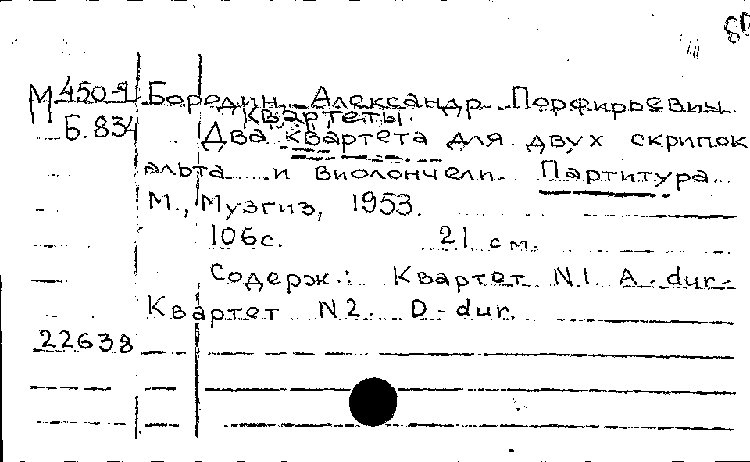 М 450-1 Бородин Александр Порфирьевич
Квартеты.
Б.834 Два квартета для двух скрипок
альта и виолончели. Партитура
М., Музгиз, 1953.
106с. 21 см.
Содерж.: Квартет N1 A-dur-
Квартет N2. D-dur.
22638